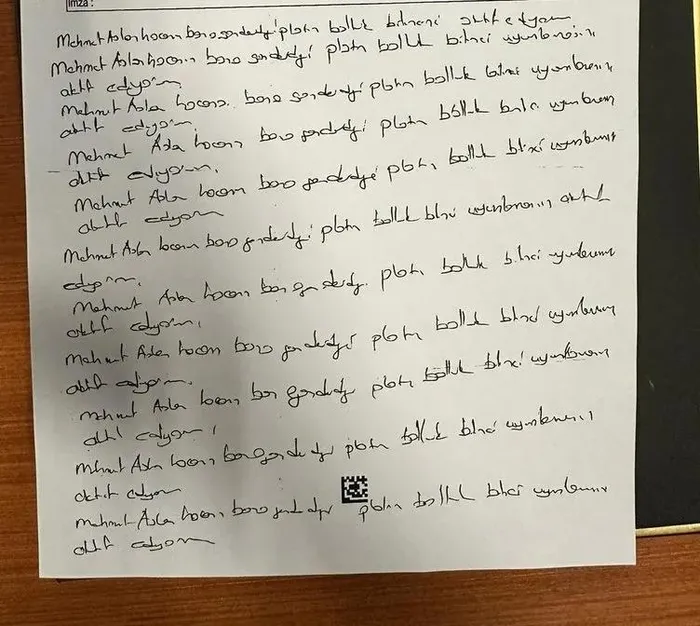 İmza :
Mehmet Aslan hocanın bana gönderdiği platin bolluk bilincini aktif ediyorum
Mehmet Aslan hocanın bana gönderdiği platin bolluk bilinci uyumlamasını
aktif ediyorum
Mehmet Aslan hocanın bana gönderdiği platin bolluk bilinci uyumlamasını
aktif ediyorum
Mehmet Aslan hocanın bana gönderdiği platin bolluk uyumlamasını
aktif ediyorum.
Mehmet Aslan hocanın bana gönderdiği platin bolluk bilinci uyumlamasını
aktif ediyorum
Mehmet Aslan hocanın bana gönderdiği platin bolluk bilinci uyumlamasını aktif
ediyorum.
Mehmet Aslan hocanın bana gönderdiği platin bolluk bilinci uyumlamasını
aktif ediyorum.
Mehmet Aslan hocanın bana gönderdiği platin bolluk bilinci uyumlamasını
aktif ediyorum.
Mehmet Aslan hocanın bana gönderdiği platin bolluk bilinci uyumlamasını
aktif ediyorum
Mehmet Aslan hocanın bana gönderdiği platin bolluk bilinci uyumlamasını
aktif ediyorum
Mehmet Aslan hocanın bana gönderdiği platin bolluk bilinci uyumlamasını
aktif ediyorum